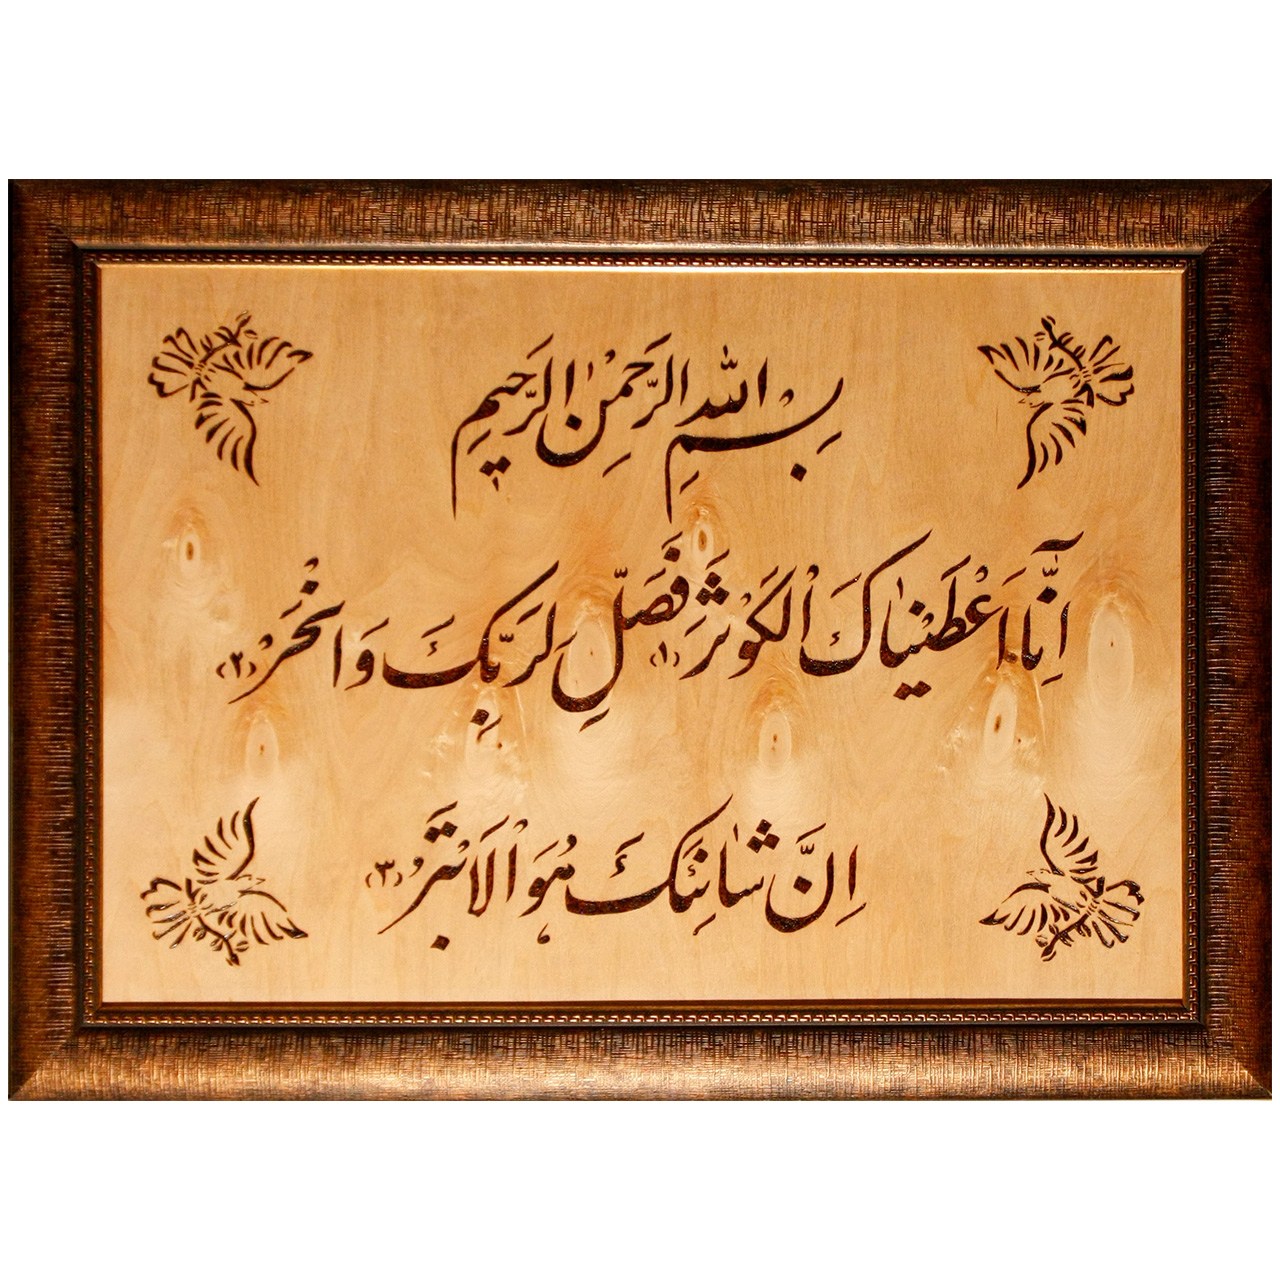 بِسْمِ اللهِ الرَّحْمٰنِ الرَّحِیمِ
اِنّٰآ اَعْطَیْنٰاکَ الْکَوْثَرَ (۱) فَصَلِّ لِرَبِّکَ وَانْحَرْ (۲)
اِنَّ شٰانِئَکَ هُوَ الْاَبْتَرُ (۳)